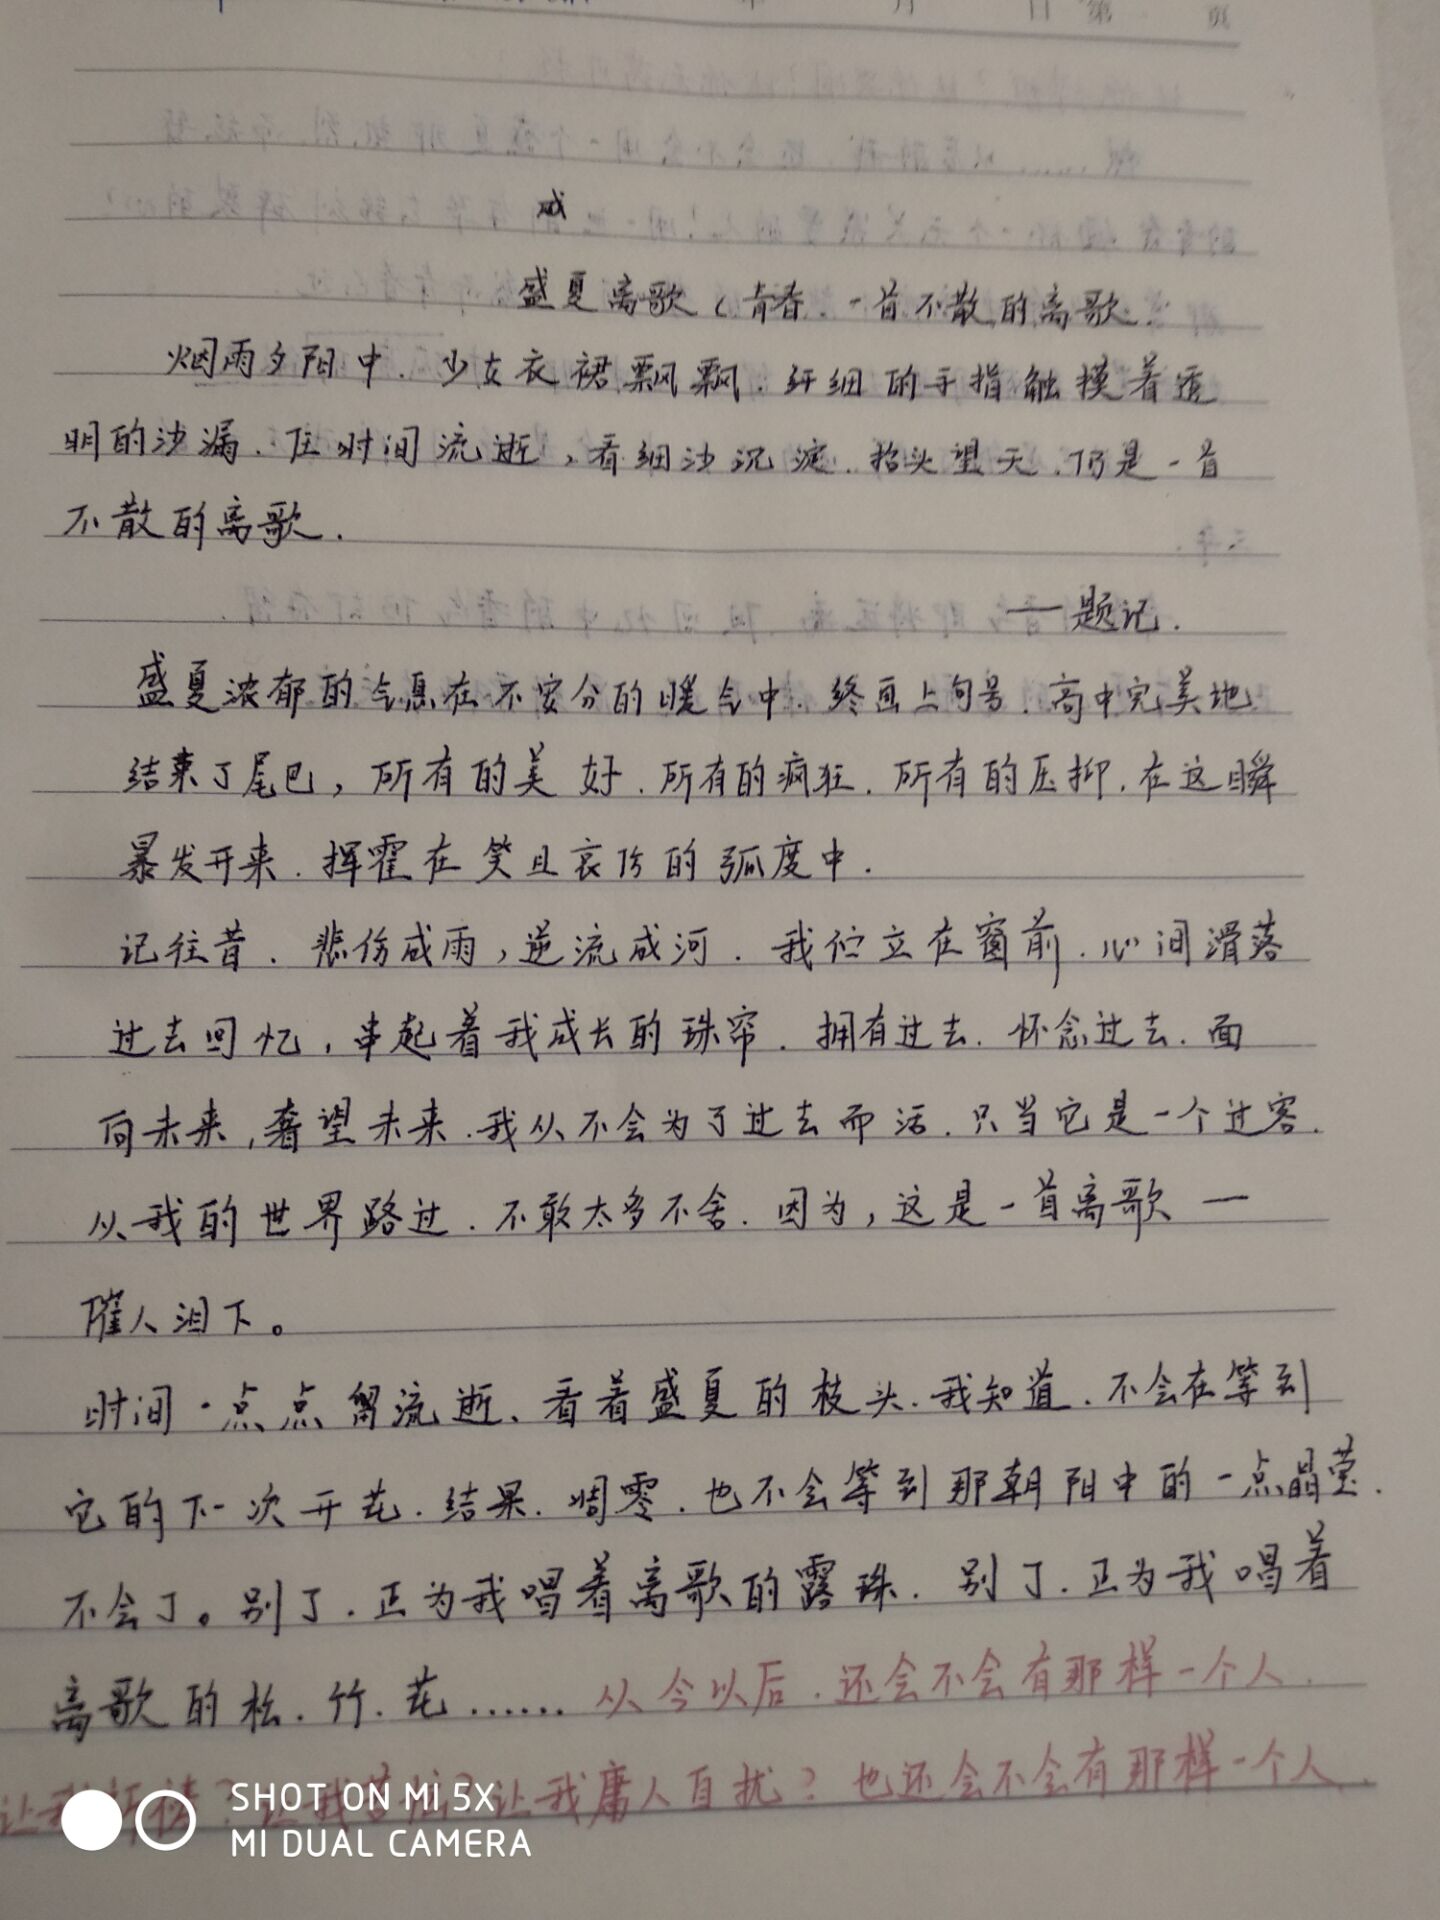 月 日 第 页
盛夏离歌(青春.一首不散的离歌.
烟雨夕阳中.少女衣裙飘飘.纤细的手指触摸着透
明的沙漏.任时间流逝,看细沙沉淀.抬头望天.仍是一首
不散的离歌.
——题记.
盛夏浓郁的气息在不安分的暖气中.终画上句号.高中完美地
结束了尾巴,所有的美好.所有的疯狂.所有的压抑.在这瞬
暴发开来.挥霍在笑且哀伤的弧度中.
记往昔.悲伤成雨,逆流成河.我伫立在窗前.心间滑落
过去回忆,串起着我成长的珠帘.拥有过去.怀念过去.面
向未来,奢望未来.我从不会为了过去而活.只当它是一个过客.
从我的世界路过.不敢太多不舍.因为,这是一首离歌—
催人泪下。
时间一点点留流逝、看着盛夏的枝头.我知道.不会在等到
它的下一次开花.结果.凋零.也不会等到那朝阳中的一点晶莹.
不会了。别了.正为我唱着离歌的露珠.别了.正为我唱着
离歌的松.竹.花……从今以后.还会不会有那样一个人.
让我 ? 让我庸人自扰?也还会不会有那样一个人.
SHOT ON MI 5X
MI DUAL CAMERA